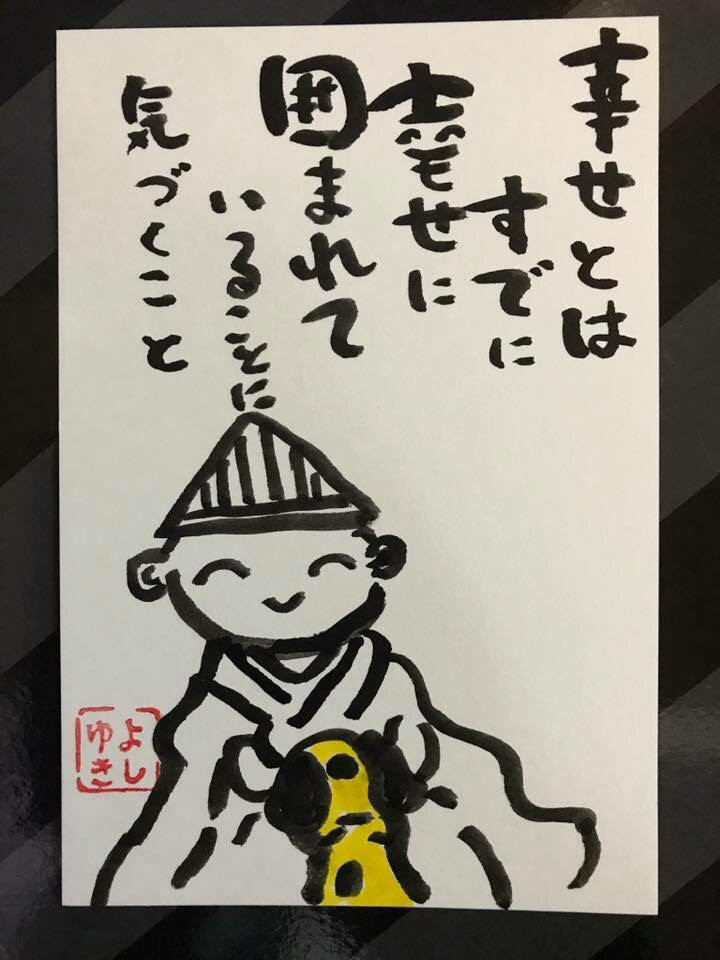 幸せとは
すでに
幸せに
囲まれて
いることに
気づくこと
よし
ゆき